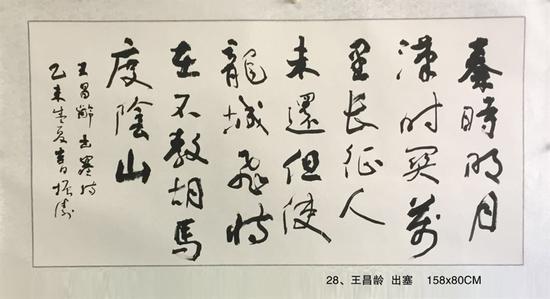 秦時明月
漢时関萬
里长征人
未還但使
龍城飛将
在不教胡馬
度陰山
王昌齡出塞诗
乙未年夏書振濤
28、王昌龄 出塞 158x80CM